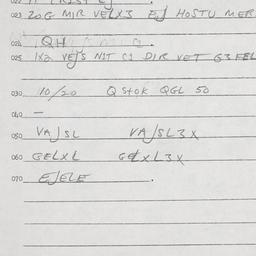 023 20G MIR VELX3 EJ HOSTU MER
024 QH
025 1X2 VEJS NIT C1 DIR VET G3 FEL
030 10/20 QStOK QGL 50
040 —
050 VAJSL VAJSL3X
060 GELXL GELXL3X
070 EJELE .